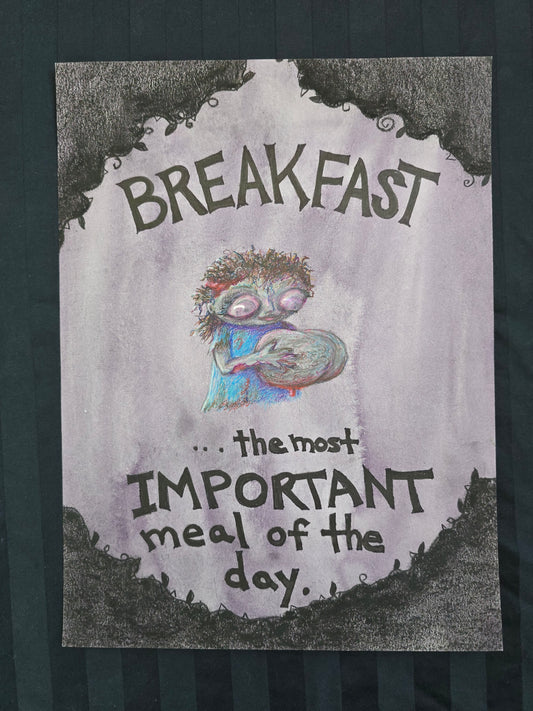 BREAKFAST
... the most
IMPORTANT
meal of the
day.